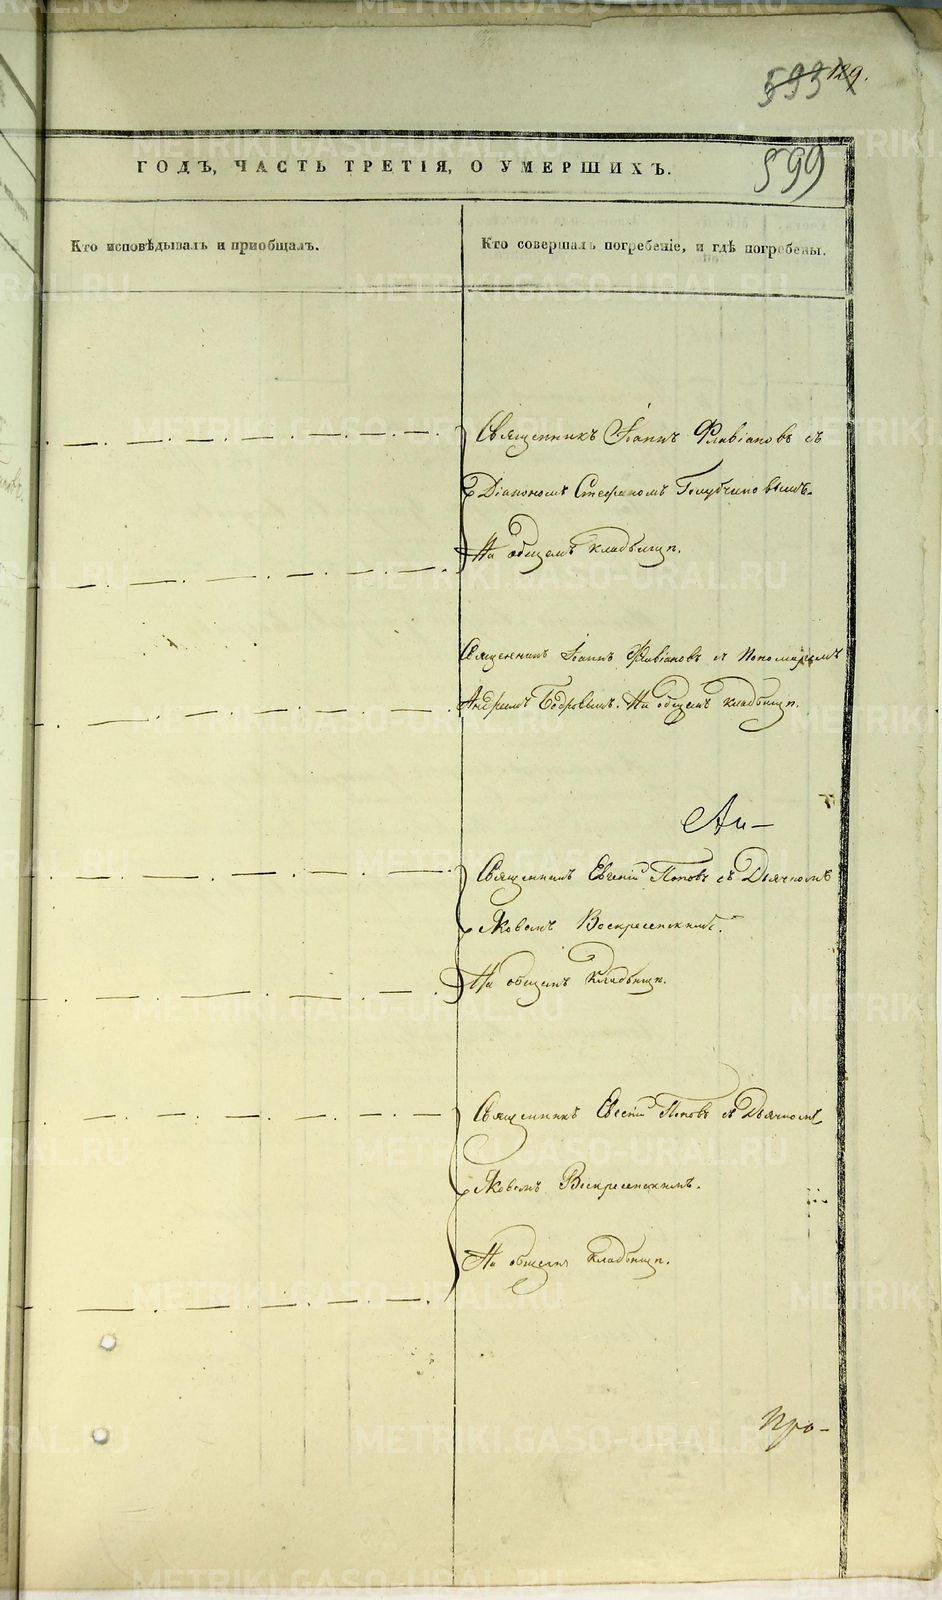 593 129.
ГОДЪ, ЧАСТЬ ТРЕТІЯ, О УМЕРШИХЪ.
599
Кто исповѣдывалъ и пріобщалъ.
Кто совершалъ погребеніе, и гдѣ погребены.
Священникъ Іоаннъ Флавіановъ съ
Діакономъ Стефаномъ Голубчиковымъ.
На общемъ кладбищѣ.
Священникъ Іоаннъ Флавіановъ съ Пономаремъ
Андреемъ Бобровымъ. На общемъ кладбищѣ.
Священникъ Евсевій Поповъ съ Дьячкомъ
Яковомъ Воскресенскимъ.
На общемъ кладбищѣ.
Священникъ Евсевій Поповъ съ Дьячкомъ
Яковомъ Воскресенскимъ.
На общемъ кладбищѣ.
Про-
METRIKI.GASO-URAL.RU